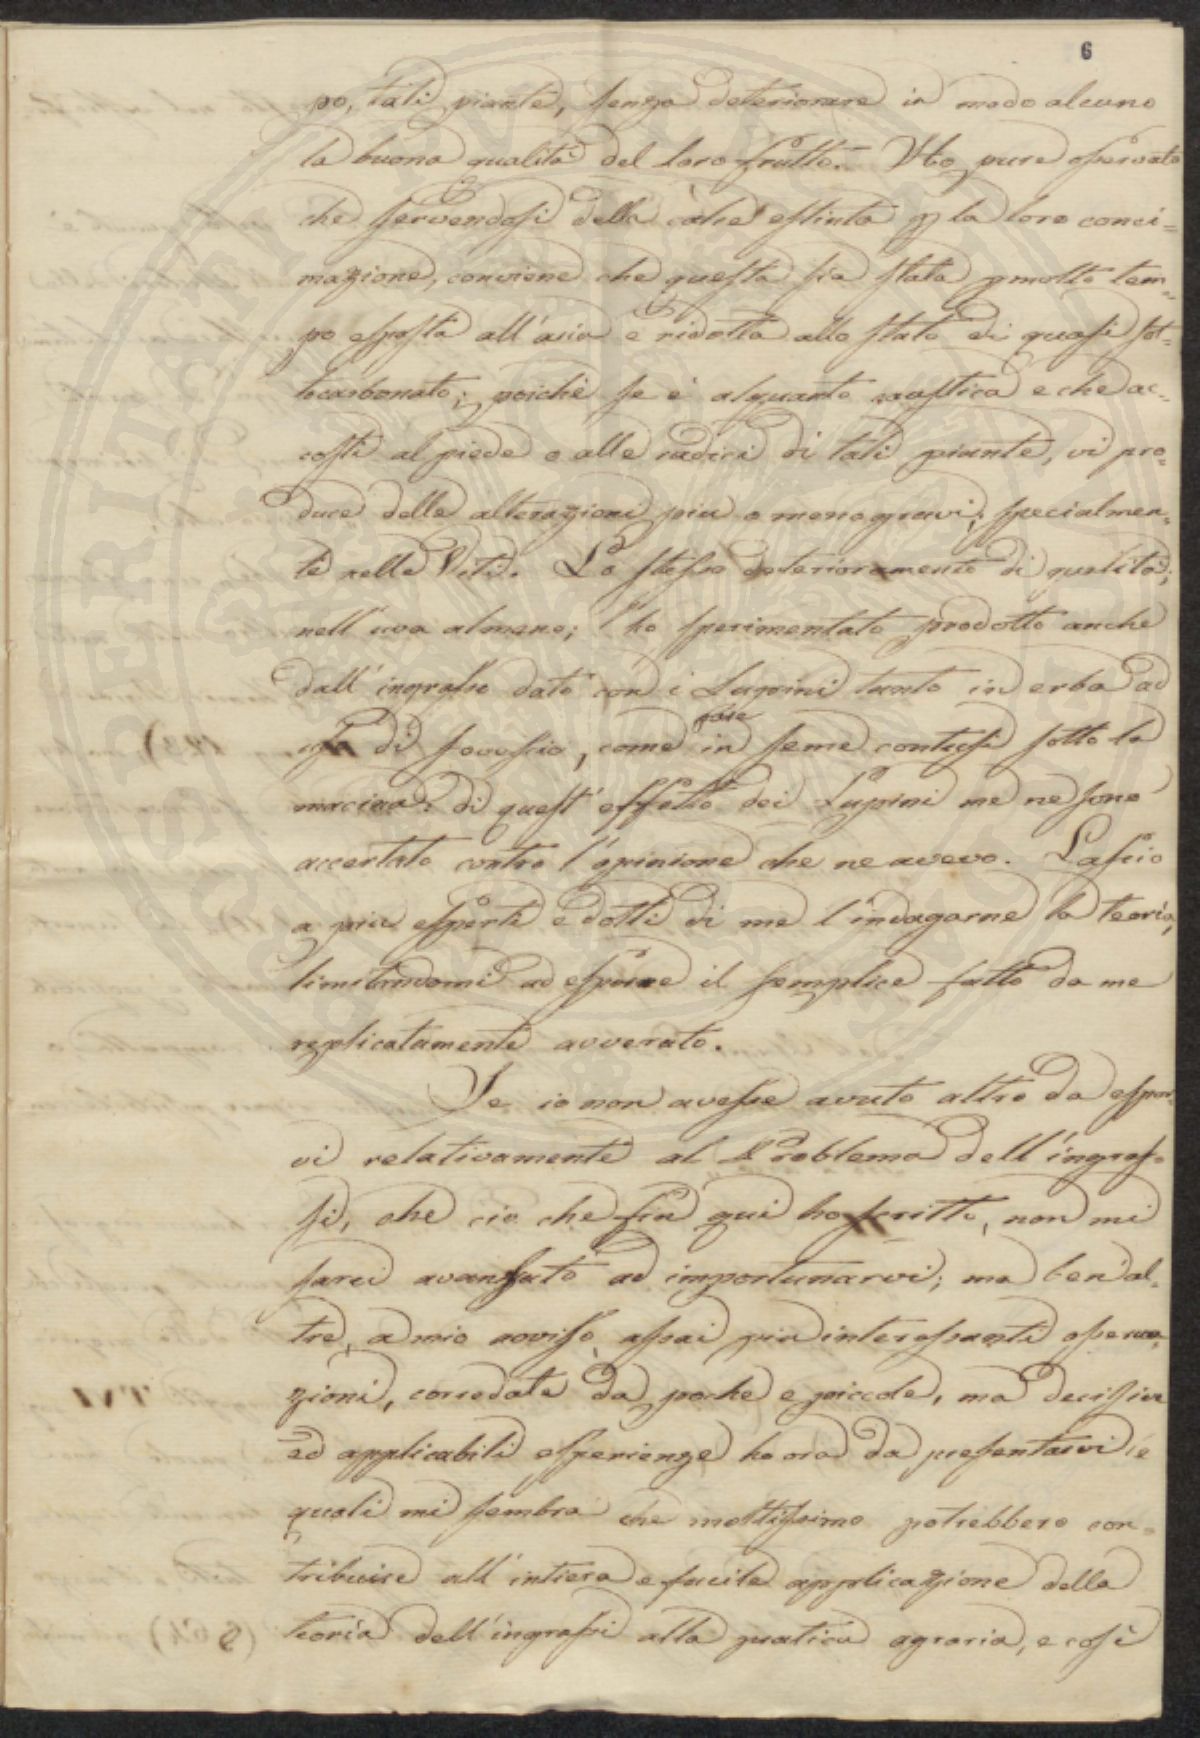 6
po, tali piante, senza deteriorare in modo alcuno
la buona qualità del loro frutto. Ho pure osservato
che servendosi della calce estinta p la loro conci=
mazione, conviene che questa sia stata p molto tem=
po esposta all'aria e ridotta allo stato di quasi sot=
tocarbonato; poichè se è alquanto caustica e che ac=
costi al piede o alle radici di tali piante, vi pro=
duce delle alterazioni piu o meno gravi, specialmen=
te nelle Viti. Lo stesso deterioramento di qualità,
nell'uva almeno; l'ho sperimentato prodotto anche
dall'ingrasso dato con i Lupini tanto in erba ad
uso di sovescio, come in seme contusi sotto la
macina: di quest'effetto dei Lupini me ne sono
accertato contro l'opinione che ne avevo. Lascio
a piu esperti e dotti di me l'indagarne la teoria,
limitandomi ad esporre il semplice fatto da me
replicatamente avverato.
Se io non avesse avuto altro da espor=
vi relativamente al Problema dell'ingras=
si, che cio che fin qui ho scritto, non mi
sarei avanzato ad importunarvi; ma ben'al=
tre, a mio avviso, assai piu interessanti osserva=
zioni, corredate da poche e piccole, ma decisive
ed applicabili esperienze ho ora da presentarvi le
quali mi sembra che moltissimo potrebbero con=
tribuire all'intiera e facile applicazione della
teoria dell'ingrassi alla pratica agraria, e così